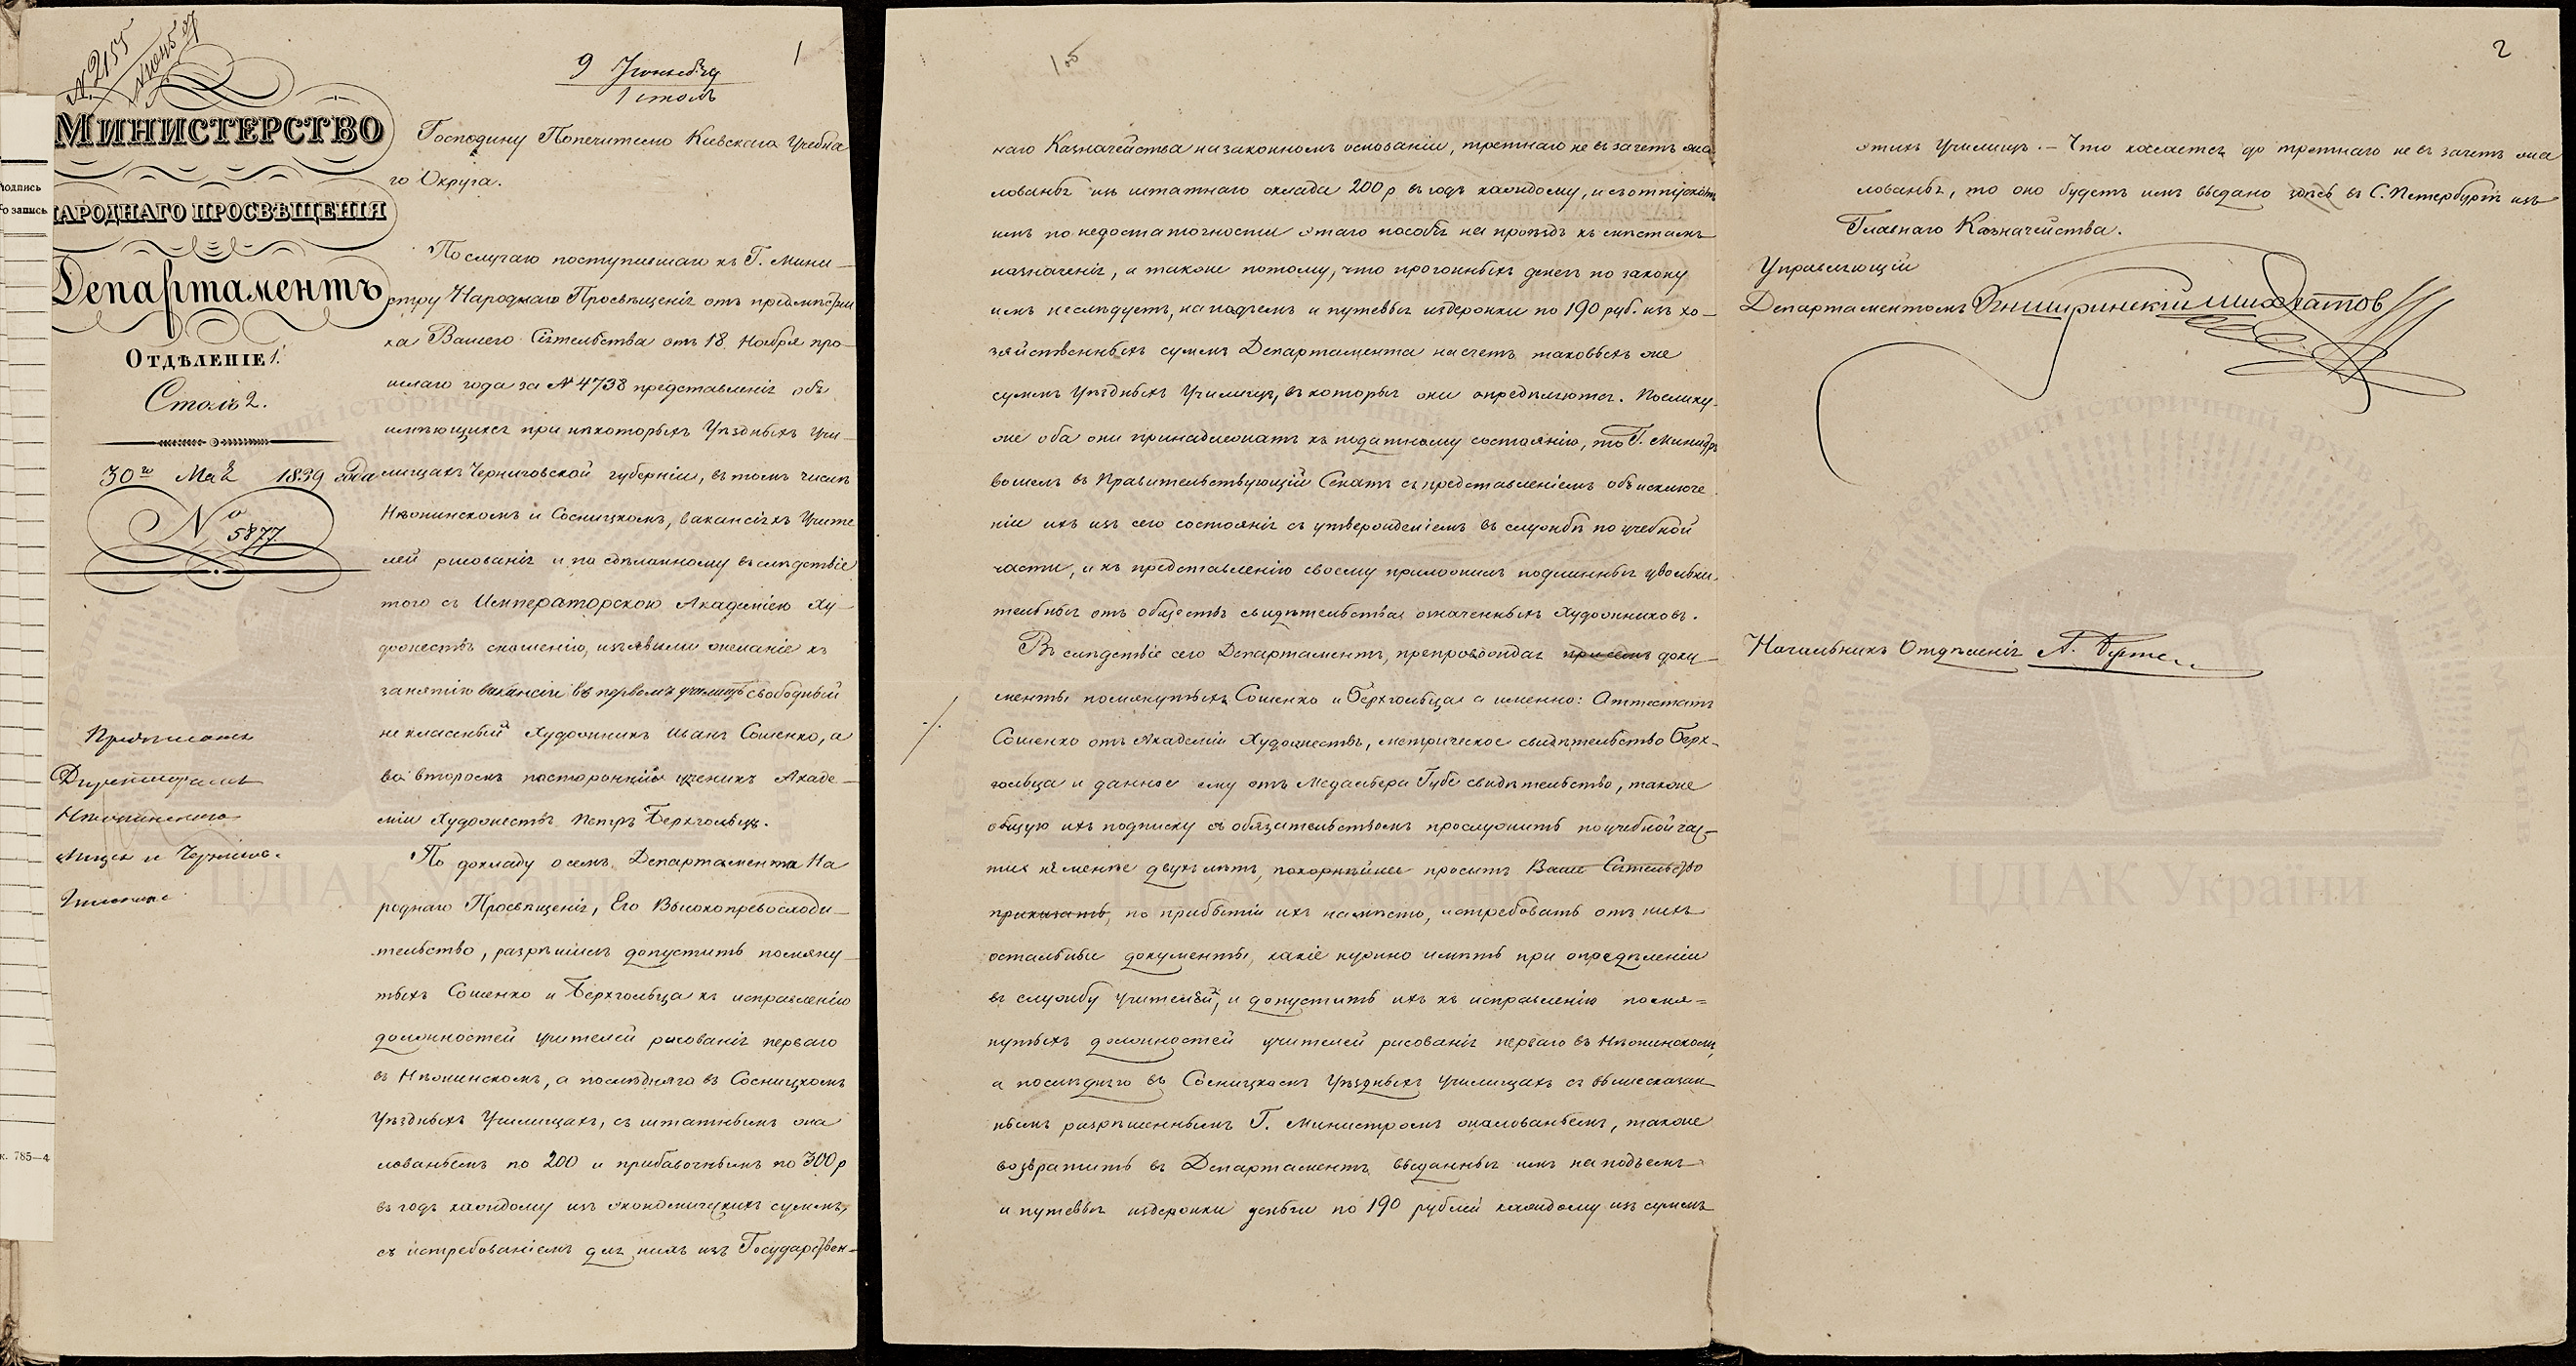 № 2155
9 Іюня
1 столъ
1
МИНИСТЕРСТВО
НАРОДНАГО ПРОСВѢЩЕНІЯ
Департаментъ
ОТДѢЛЕНІЕ 1.
Столъ 2.
30го Мая 1839 года
№ 5877.
Предписать
Директорамъ
Нѣжинскаго
Лицея и Чернигов.
Гимназіи
Господину Попечителю Кіевскаго Учебна
го Округа.
По случаю поступившаго къ Г. Мини-
стру Народнаго Просвѣщенія отъ предмѣстни
ка Вашего Сіятельства отъ 18 Ноября про-
шлаго года за № 4738 представленія объ
имѣющихся при нѣкоторыхъ Уѣздныхъ Учи-
лищахъ Черниговской губерніи, въ томъ числѣ
Нѣжинскомъ и Сосницкомъ, вакансіяхъ Учите
лей рисованія и по сдѣланному въ слѣдствіе
того съ Императорскою Академіею Ху-
дожествъ сношенію, изъявили желаніе къ
занятію вакансіи въ первомъ училищѣ свободный
неклассный Художникъ Иванъ Сошенко, а
во второмъ посторонній ученикъ Акаде-
міи Художествъ Петръ Бергхольцъ.
По докладу о семъ Департамента На
роднаго Просвѣщенія, Его Высокопревосходи-
тельство, разрѣшилъ допустить помяну-
тыхъ Сошенко и Бергхольца къ исправленію
должностей учителей рисованія перваго
въ Нѣжинскомъ, а послѣдняго въ Сосницкомъ
Уѣздныхъ Училищахъ, съ штатнымъ жа
лованьемъ по 200 и прибавочнымъ по 300 р
въ годъ каждому изъ экономическихъ суммъ,
съ истребованіемъ для нихъ изъ Государствен-
наго Казначейства на законномъ основаніи, третнаго не въ зачетъ жа
лованья изъ штатнаго оклада 200 р въ годъ каждому, и съ отпускомъ
имъ по недостаточности этаго пособія на проѣздъ къ мѣстамъ
назначенія, а также потому, что прогонныхъ денегъ по закону
имъ неслѣдуетъ, на подъемъ и путевыя издержки по 190 руб. изъ хо-
зяйственныхъ суммъ Департамента на счетъ таковыхъ же
суммъ Уѣздныхъ Училищъ, въ которыя они опредѣляются. Поелику-
же оба они принадлежатъ къ податному состоянію, то Г. Министръ
вошелъ въ Правительствующій Сенатъ съ представленіемъ объ исключе
ніи ихъ изъ сего состоянія съ утвержденіемъ въ службѣ по учебной
части, и къ представленію своему приложилъ подлинныя увольни.
тельныя отъ обществъ свидѣтельства означенныхъ Художниковъ.
Въ слѣдствіе сего Департаментъ, препровождая при семъ доку-
менты помянутыхъ Сошенко и Бергхольца а именно: Аттестатъ
Сошенко отъ Академіи Художествъ, метрическое свидѣтельство Берх-
гольца и данное ему отъ Медальера Губе свидѣтельство, также
общую ихъ подписку съ обязательствомъ прослужить по учебной час-
ти не менѣе двухъ лѣтъ, покорнѣйше проситъ Ваше Сіятельство
приказать, по прибытіи ихъ на мѣсто, истребовать отъ нихъ
остальные документы, какіе нужно имѣть при опредѣленіи
въ службу учителей, и допустить ихъ къ исправленію помя=
нутыхъ должностей учителей рисованія перваго въ Нѣжинскомъ,
а послѣдняго въ Сосницкомъ Уѣздныхъ Училищахъ съ вышесказан
нымъ разрѣшеннымъ Г. Министромъ жалованьемъ, также
возвратить въ Департаментъ выданныя имъ на подъемъ
и путевыя издержки деньги по 190 рублей каждому изъ суммъ
2
этихъ Училищъ. — Что касается до третнаго не въ зачетъ жа
лованья, то оно будетъ имъ выдано здѣсь въ С. Петербургѣ изъ
Главнаго Казначейства.
Управляющій
Департаментомъ Кн. Ширинскій Шихматов
Начальникъ Отдѣленія А.
ЦДІАК України
ЦДІАК України